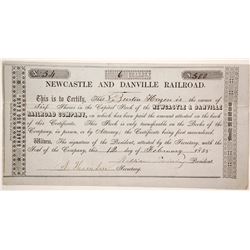 No. 54 6 $ 500
NEWCASTLE AND DANVILLE RAILROAD.
This is to Certify, That is the owner of
Shares in the Capital Stock of the NEWCASTLE & DANVILLE
RAILROAD COMPANY, on which has been paid the amount attested on the back
of this Certificate. This Stock is only transferable on the Books of the
Company, in person, or by Attorney; the Certificate being first surrendered.
Witness, The signature of the President, attested by the Secretary, with the
Seal of the Company, this day of February
President.
Secretary.